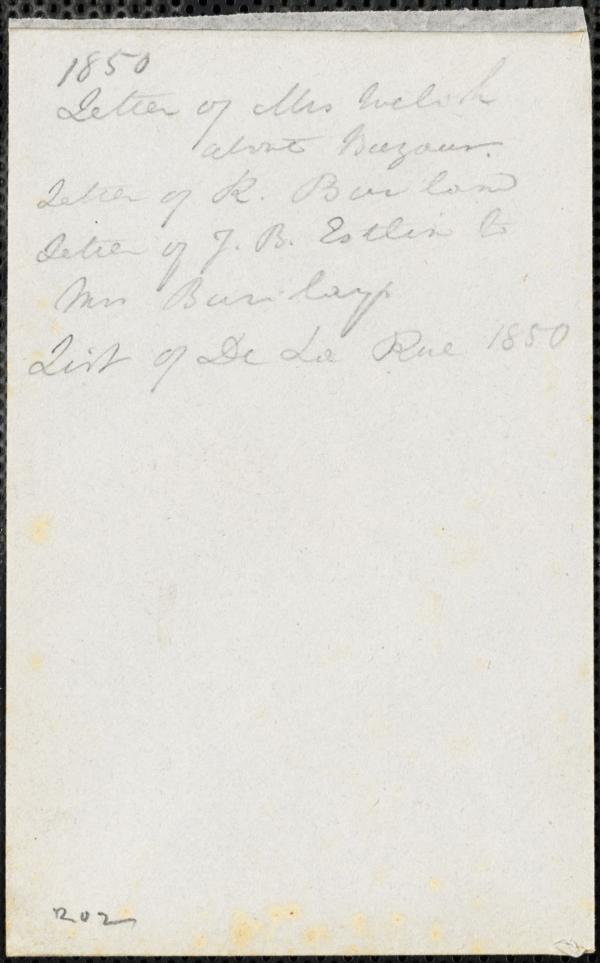 1850
Letter of Mrs Welsh
about Bazaar.
Letter of R.
Letter of J. B. Estlin to
Mrs
List of De La Rue 1850
202